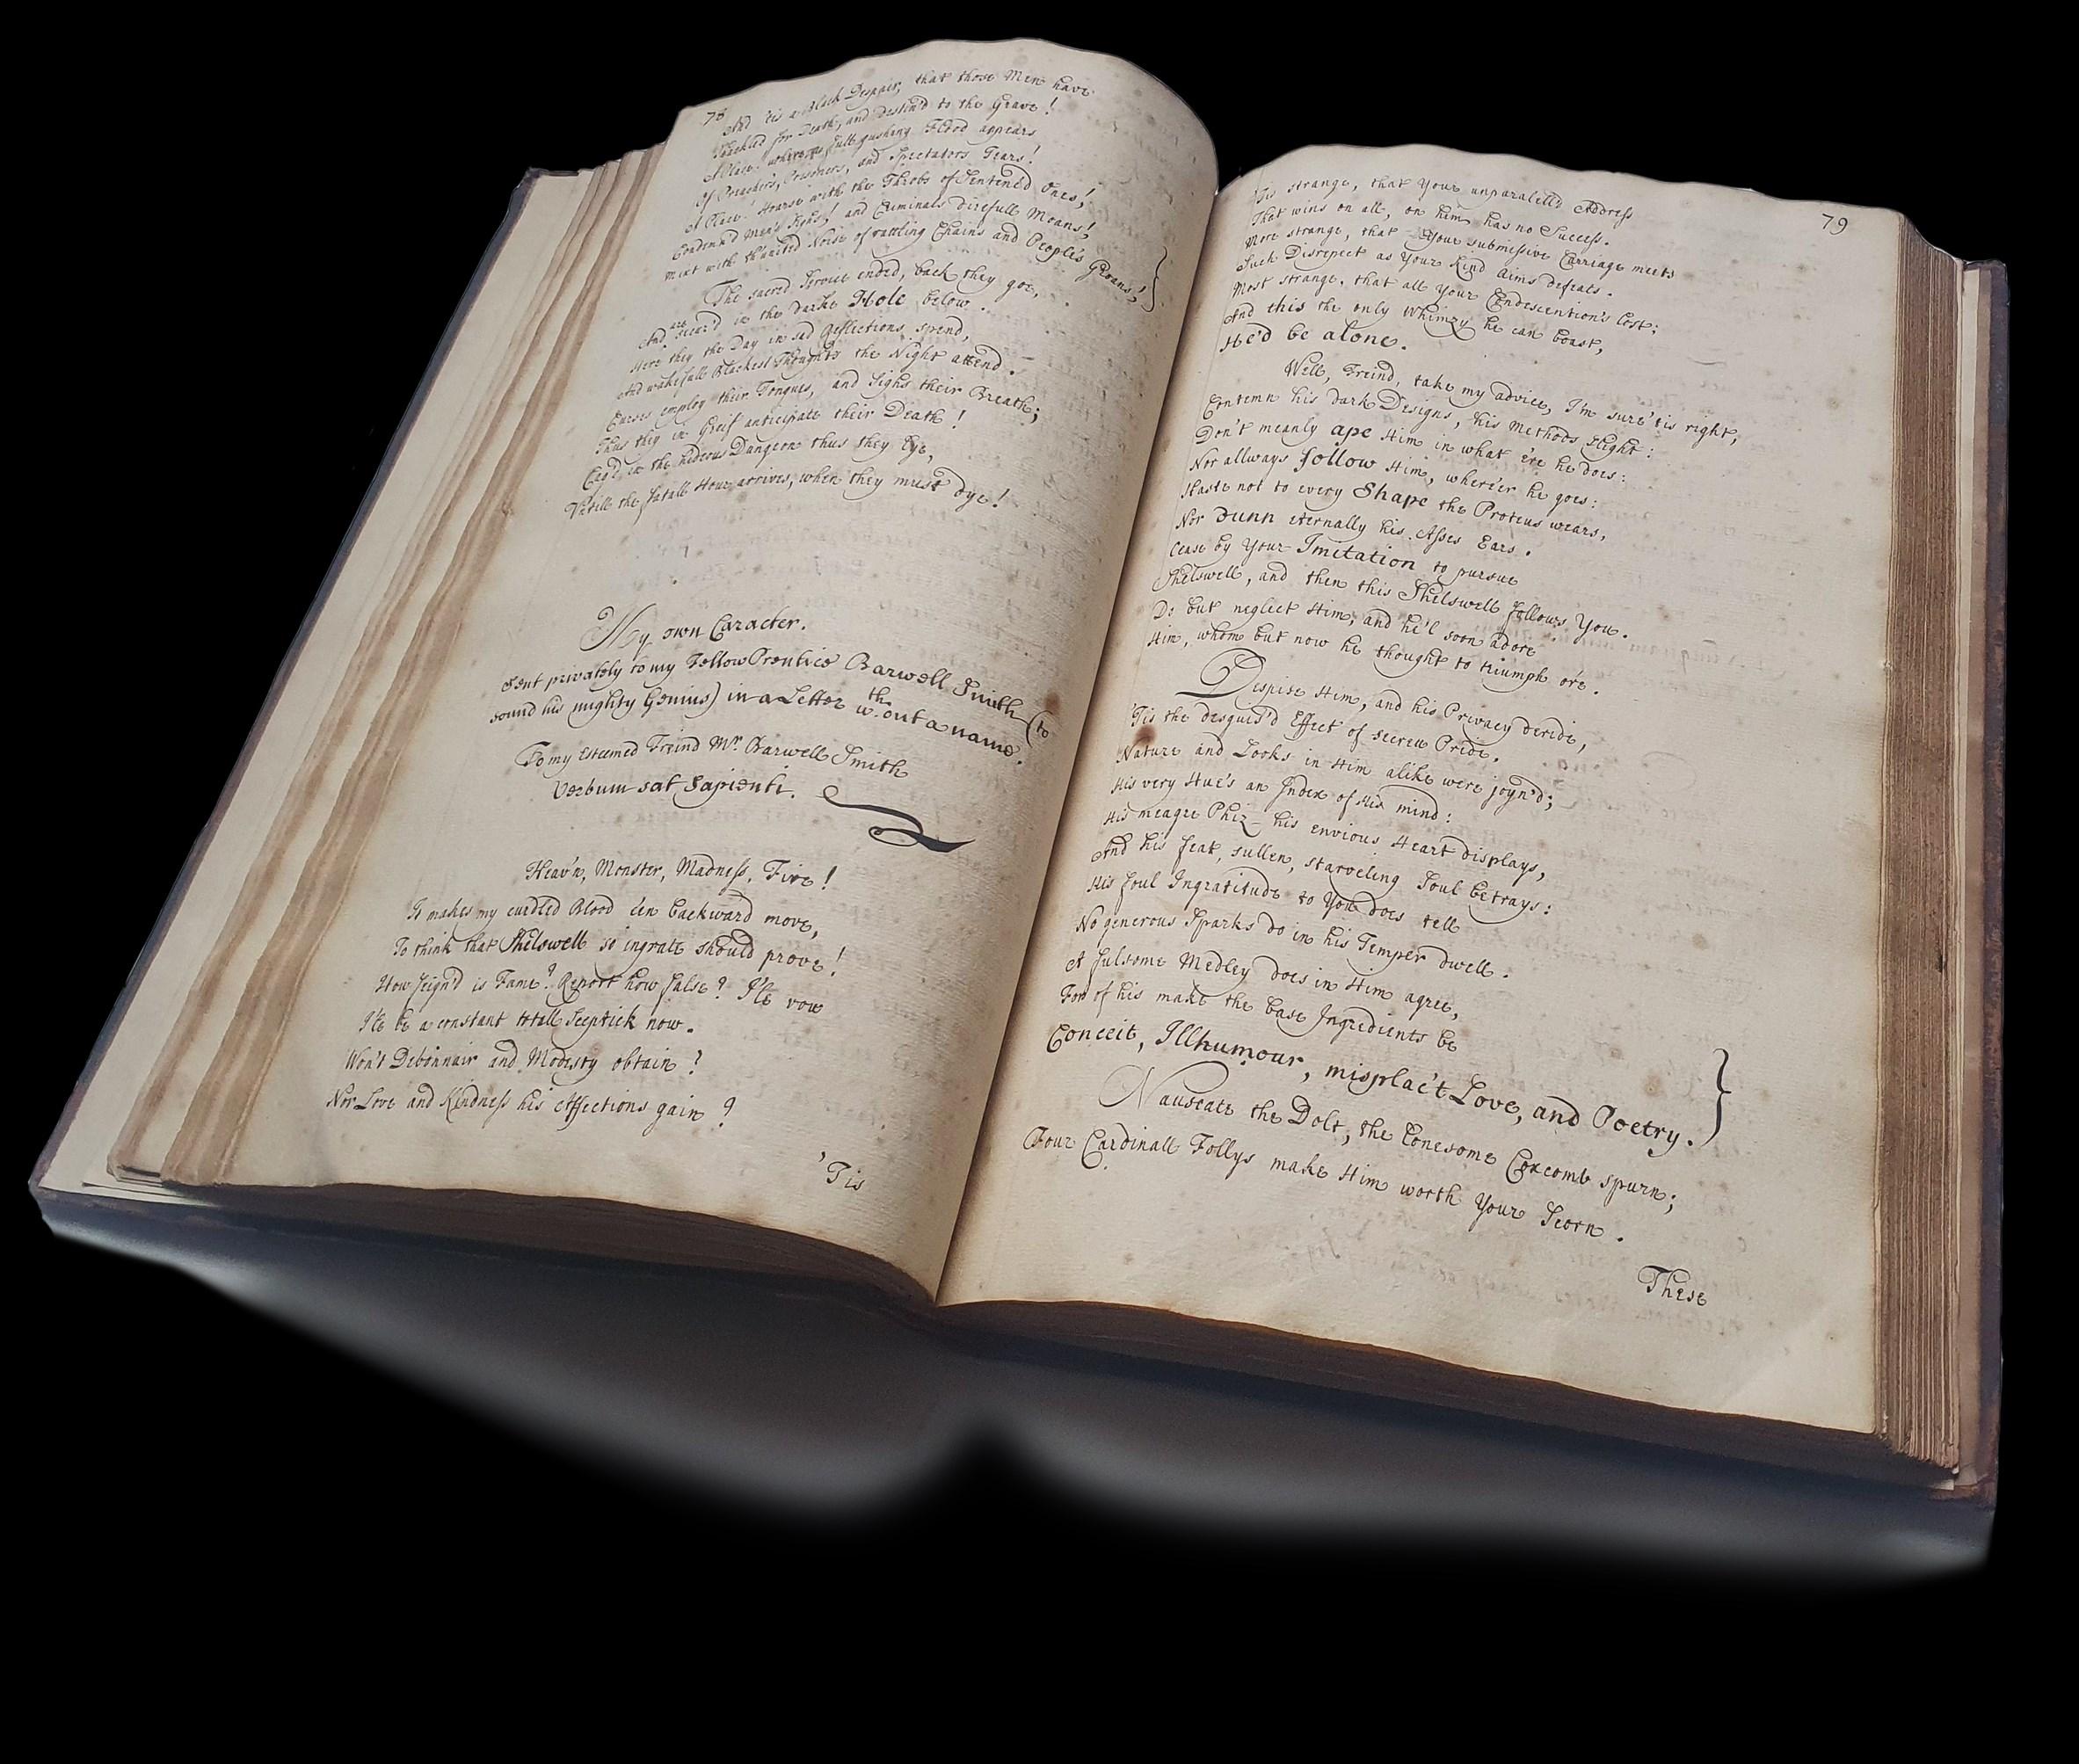 78
And 'tis a black Despair, that those Men have
Shackled for Death, and destin'd to the Grave!
A Place! where a full gushing Flood appears
Of Preachers, Prisoners, and Spectators Tears!
A Place! Hoarse with the Throbs of Sentenc'd Ones!
Condemn'd Men's Sighs! and Criminals direfull Moans!
Mixt with th'united Noise of rattling Chains and People's Groans!
The sacred Service ended, back they goe,
And are in the darke Hole below.
Here they the Day in sad Reflections spend,
And wakefull Blackest Thoughts the Night attend.
Curses employ their Tongues, and Sighs their Breath;
Thus they in Greif anticipate their Death!
Cag'd in the hideous Dungeon thus they lye,
Untill the fatall Hour arrives, when they must dye!
My own Caracter.
Sent privately to my Fellow Prentice Barwell Smith (to
sound his mighty Genius) in a Letter wth.out a name.
To my Esteemed Freind Mr. Barwell Smith
Verbum sat Sapienti.
Heav'n, Monster, Madness, Fire!
It makes my curdled Blood e'en backward move,
To think that Shelswell so ingrate should prove!
How feign'd is Fame? Report how false? I'le vow
I'le be a constant totall Sceptick now.
Won't Debonnair and Modesty obtain?
Nor Love and Kindness his Affections gain?
'Tis
79
'Tis strange, that Your unparalell'd Address
That wins on all, on him has no Success.
More strange, that Your submissive Carriage meets
Such Disrepect as Your kind Aims defeats.
Most strange, that all Your Condescention's lost;
And this the only Whimzy he can boast,
He'd be alone.
Well, Freind, take my advice, I'm sure 'tis right,
Contemn his dark Designs, his Methods slight:
Don't meanly ape Him in what e're he does:
Nor allways follow Him, where'er he goes:
Haste not to every Shape the Proteus wears,
Nor Dunn eternally his Asses Ears.
Cease by Your Imitation to pursue
Shelswell, and then this Shelswell follows You.
Do but neglect Him, and he'l soon adore
Him, whom but now he thought to triumph o're.
Despise Him, and his Privacy deride,
'Tis the desguis'd Effect of secret Pride.
Nature and Looks in Him alike were joyn'd;
His very Hue's an Index of His mind:
His meagre Phiz his envious Heart displays,
And his feat, sullen, starveling Soul betrays:
His foul Ingratitude to You does tell
No generous Sparks do in his Temper dwell.
A fulsome Medley does in Him agree,
For of his make the base Ingredients be
Conceit, Illhumour, misplac't Love, and Poetry.
Nauseate the Dolt, the lonesome Coxcomb spurn;
Four Cardinall Follys make Him worth Your Scorn.
These